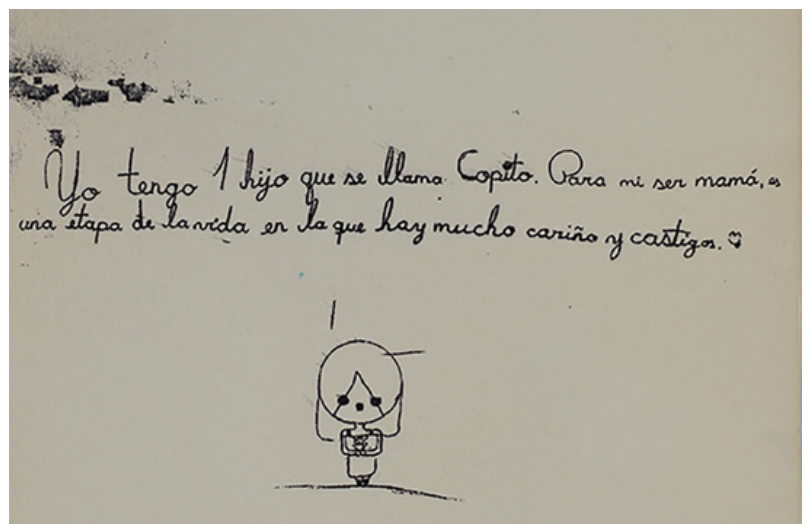 Yo tengo 1 hijo que se llama Copito. Para mi ser mamá, es
una etapa de la vida en la que hay mucho cariño y castigos.